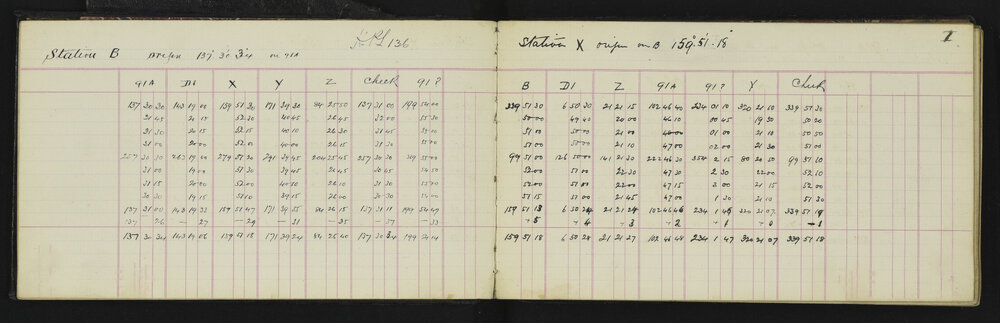 136
Station B origin 137° 30' 34" on 91A
91A D1 X Y Z Check 91?
137 30 30 143 19 00 159 51 30 171 39 30 84 25 50 137 31 00 199 54 00
31 45 20 15 52 30 40 45 26 45 32 00 55 30
31 30 20 15 52 15 40 10 26 30 31 45 55 10
31 00 20 00 52 00 40 00 26 15 31 00 55 00
257 30 30 263 19 00 279 51 30 291 39 45 204 25 45 257 30 30 319 55 00
31 00 19 00 52 00 40 00 26 45 30 45 54 50
31 15 20 00 52 00 40 50 26 10 31 30 55 00
30 30 19 15 51 10 39 15 26 00 30 30 54 00
137 31 00 143 19 33 159 51 47 171 39 55 84 26 15 137 31 11 199 54 47
137 - 26 - 27 - 29 - 31 - 35 - 37 - 33
137 30 34 143 19 06 159 51 18 171 39 24 84 26 40 137 30 34 199 24 14
Station X origin on B 159° 51' 18"
1
B D1 Z 91A 91? Y Check
339 51 30 6 50 30 21 21 15 102 46 40 234 01 10 320 21 10 339 51 30
50 00 49 40 20 00 46 10 00 45 19 30 50 20
51 10 50 00 21 00 01 00 21 10 50 50
51 00 50 00 21 10 47 00 02 00 21 30 51 00
99 51 00 126 50 00 141 21 30 222 46 30 354 2 15 80 20 50 99 51 10
52 00 51 00 22 30 47 30 2 30 22 00 52 10
52 00 51 00 22 00 47 15 2 00 21 15 52 00
51 15 51 00 21 45 47 00 1 30 21 10 51 30
159 51 13 6 30 24 21 21 24 102 46 46 234 1 46 320 21 07 339 51 19
+ 5 + 4 + 3 + 2 + 1 + 0 - 1
159 51 18 6 50 28 21 21 27 102 46 48 234 1 47 320 21 07 339 51 18